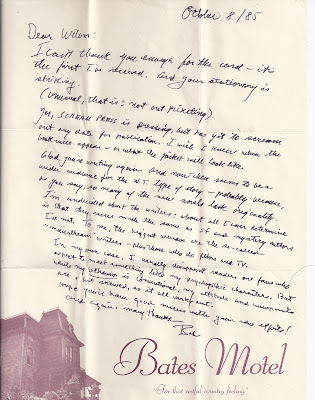 October 8/85
Dear Wilum:
I can't thank you enough for the card - it's
the first I've received. And your stationery is
striking.
(Unusual, that is: not out picketing).
Yes, SCREAM PRESS is pressing but has yet to scream
out any date for publication. I wish I knew when the
book will appear - or what the jacket will look like.
Glad you're writing again and now there seems to be a
wider audience for the W.T. type of story - probably because,
as you say, so many of the new novels lack originality.
I'm undecided about the writers: about all I can determine
is that they seem much the same as sf and mystery authors
I've met. To me, the biggest weirdos are the so-called
"mainstream" writers - plus those who do films and TV.
In my own case, I usually disappoint readers or fans who
expect to meet something like my psychopathic characters. But
while my behavior is conventional, my attitude and viewpoints
are a bit skewed, so it all works out.
Hope you'll have good success with your new efforts!
And again, many thanks
Bob
Bates Motel
"For that restful country feeling"